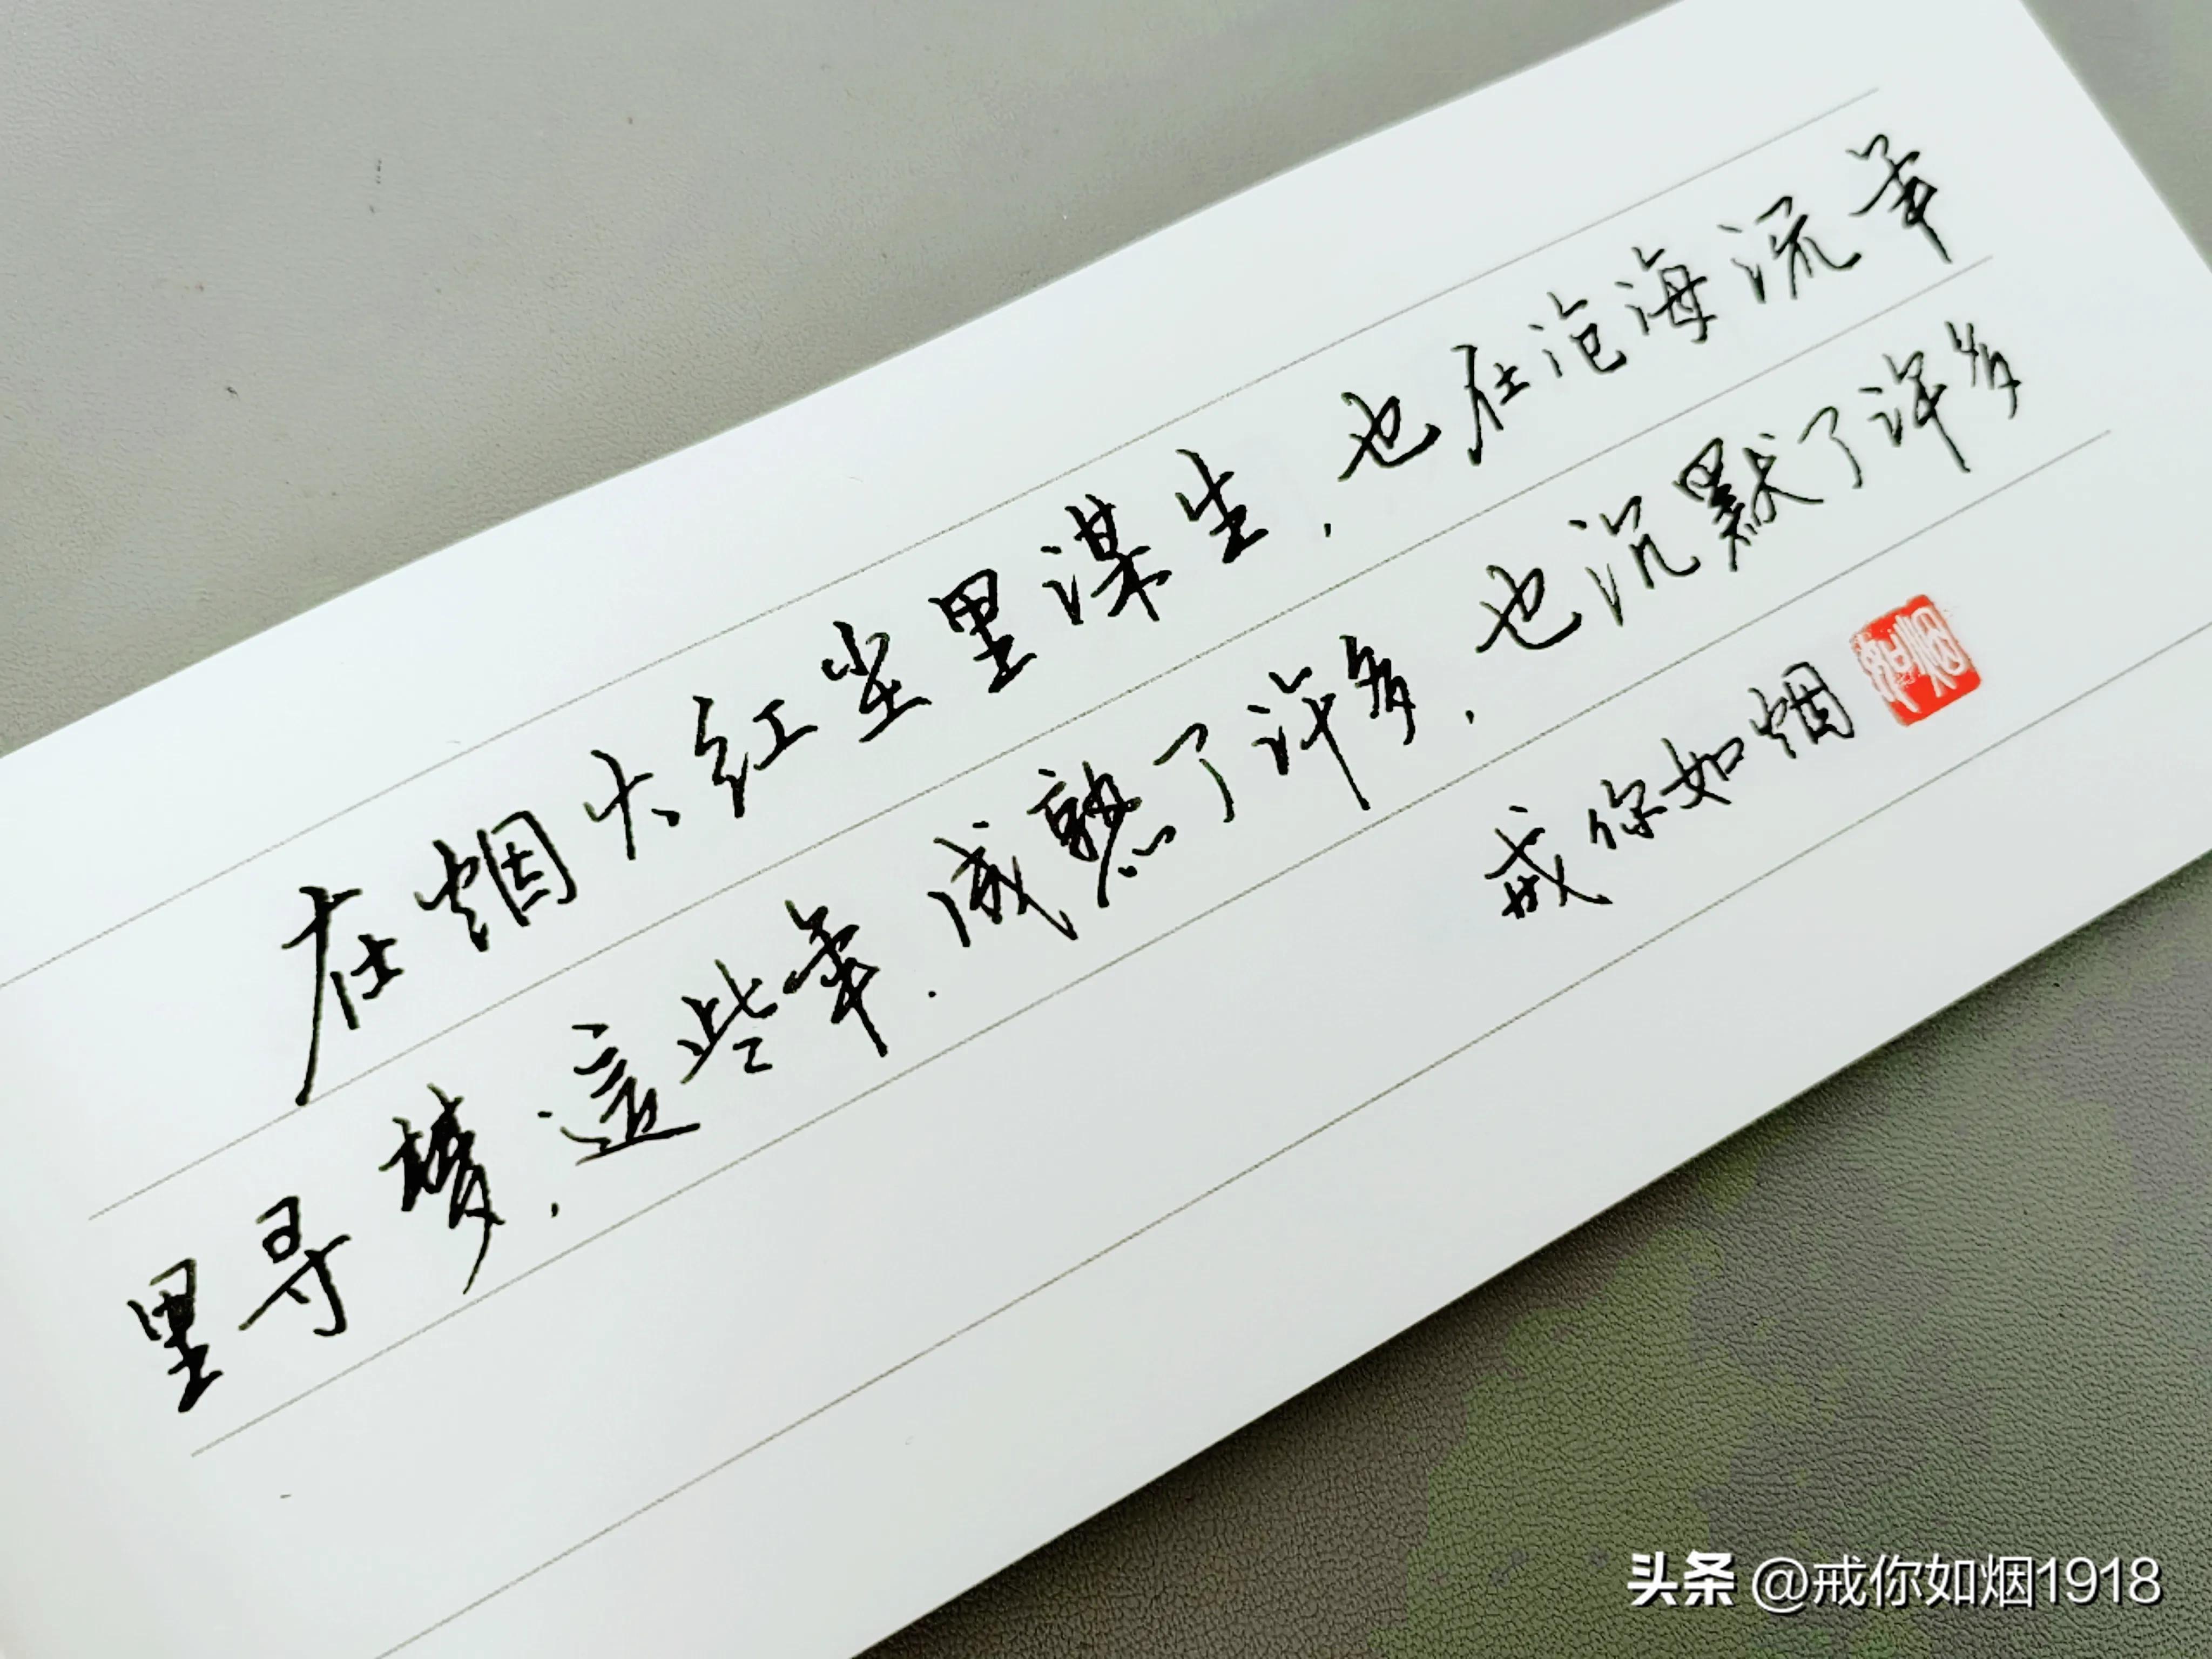 在烟火红尘里谋生，也在沧海流年
里寻梦，這些年，成熟了许多，也沉默了许多
戒你如烟
头条 @戒你如烟1918